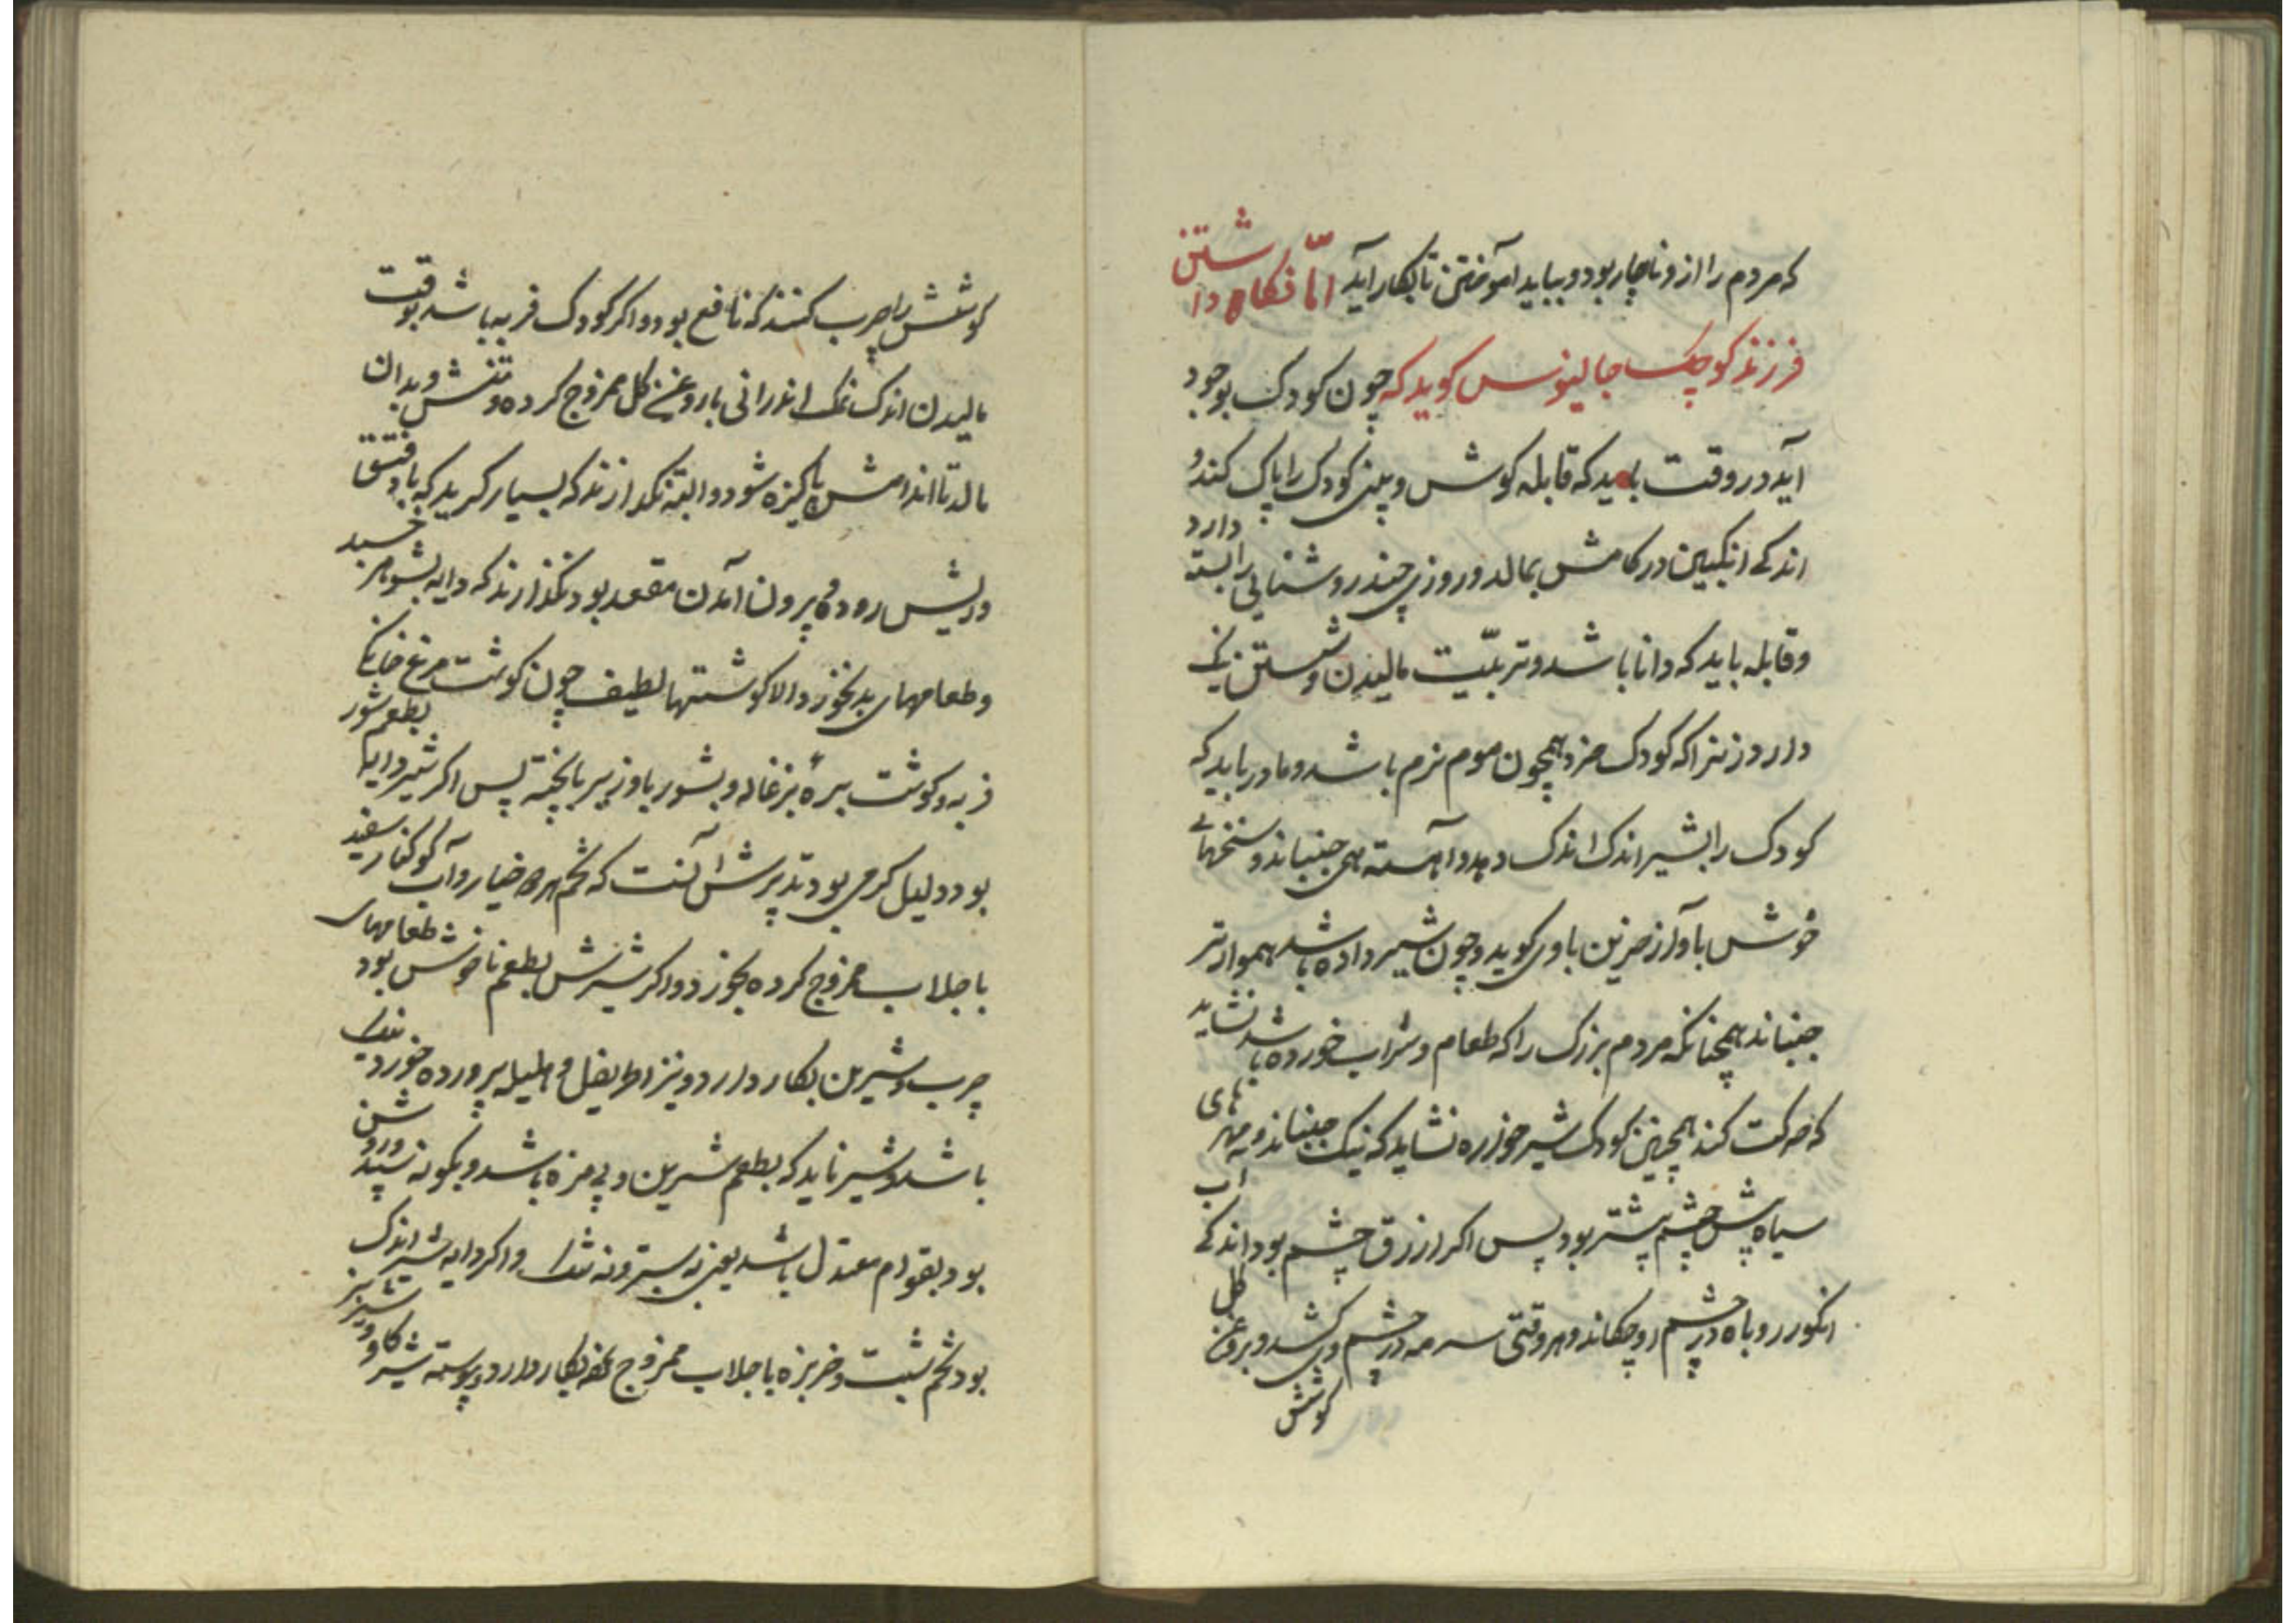 که مردم را ازو ناچار بود و بباید آموختن تا بکار آید امّا نکاه داشتن
فرزند کوچک جالینوس کوید که چون کودک بوجود
آید در وقت باید که قابله کوش و بینی کودک را پاک کند و
اندکی انکبین در کامش بمالد و روزی چند روشنایی را بسته دارد
و قابله باید که دانا باشد و تربیّت مالیدن و شستن نیک
داند زیرا که کودک خرد همچون موم نرم باشد و مادر باید که
کودک را بشیر اندک اندک دهد و آهسته همی جنباند و سخنهای
خوش باواز حزین باوی کوید و چون شیر داده باشد هموارتر
جنباند همچنانکه مردم بزرک را که طعام و شراب خورده باشد نشاید
که حرکت کند همچنین کودک شیر خواره نشاید که نیک جنباند و مهرهای
سیاه پیش چشم بیشتر بود پس اکر ازرق چشم بود اندکی آب
انکور روباه در چشم او چکاند و هر وقتی سرمه در چشم وی کشد و بروغن کل
کوشش
کوشش را چرب کنند که نافع بود و اکر کودک فربه باشد بوقت
مالیدن اندک نمک اندرانی با روغن کل ممزوج کرده و تنش و بدان
مالد تا اندامش پاکیزه شود و البته نکذارند که بسیار کرید که باد فتق
و ریش روده و بیرون آمدن مقعد بود نکذارند که دایه بشوهر خسبد
و طعامهای بد نخورد الا کوشتهاء لطیف چون کوشت مرغ خانکی
فربه و کوشت بره بزغاله و بشوربا و زیربا پخته پس اکر شیر دایه بطعم شور
بود دلیل کرمی بود تدبیرش آنست که تخم خیار و آب کوکنار سفید
با جلاب ممزوج کرده بخورد و اکر شیرش بطعم ناخوش بود طعامهای
چرب و شیرین بکار دارد و نیز اطریفل و هلیله پرورده خورد نیک
باشد و شیر باید که بطعم شیرین و بی مزه باشد و بکونه سپید و روشن
بود بقوام معتدل باشد یعنی نه ستبر و نه تنک و اکر دایه شیر اندک
بود تخم شبت و خربزه با جلاب ممزوج بکار دارد و پیوسته شیر کاو و شیر بز